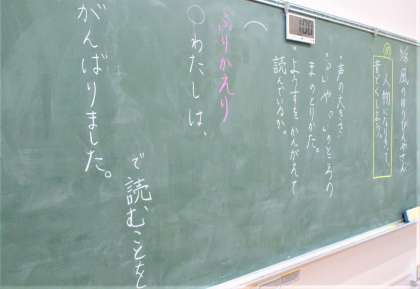 人物になりきって、
音どくしよう。
・声の大きさ
まのとりかた。
ようすをかんがえて
読んでいるか。
ふりかえり
○わたしは、
で読むことを
がんばりました。
100